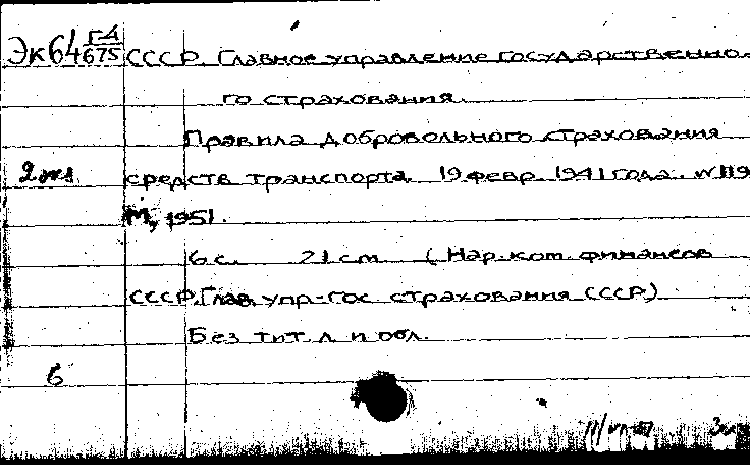 Эк64 Г-4/675 СССР. Главное управление государственно-
го страхования.
Правила добровольного страхования
2 экз средств транспорта. 19 февр. 1941 года. N 119
М., 1951.
6 с. 21 см. (Нар. ком. финансов
СССР. Глав. упр-гос страхования СССР)
Без тит. л. и обл.
6